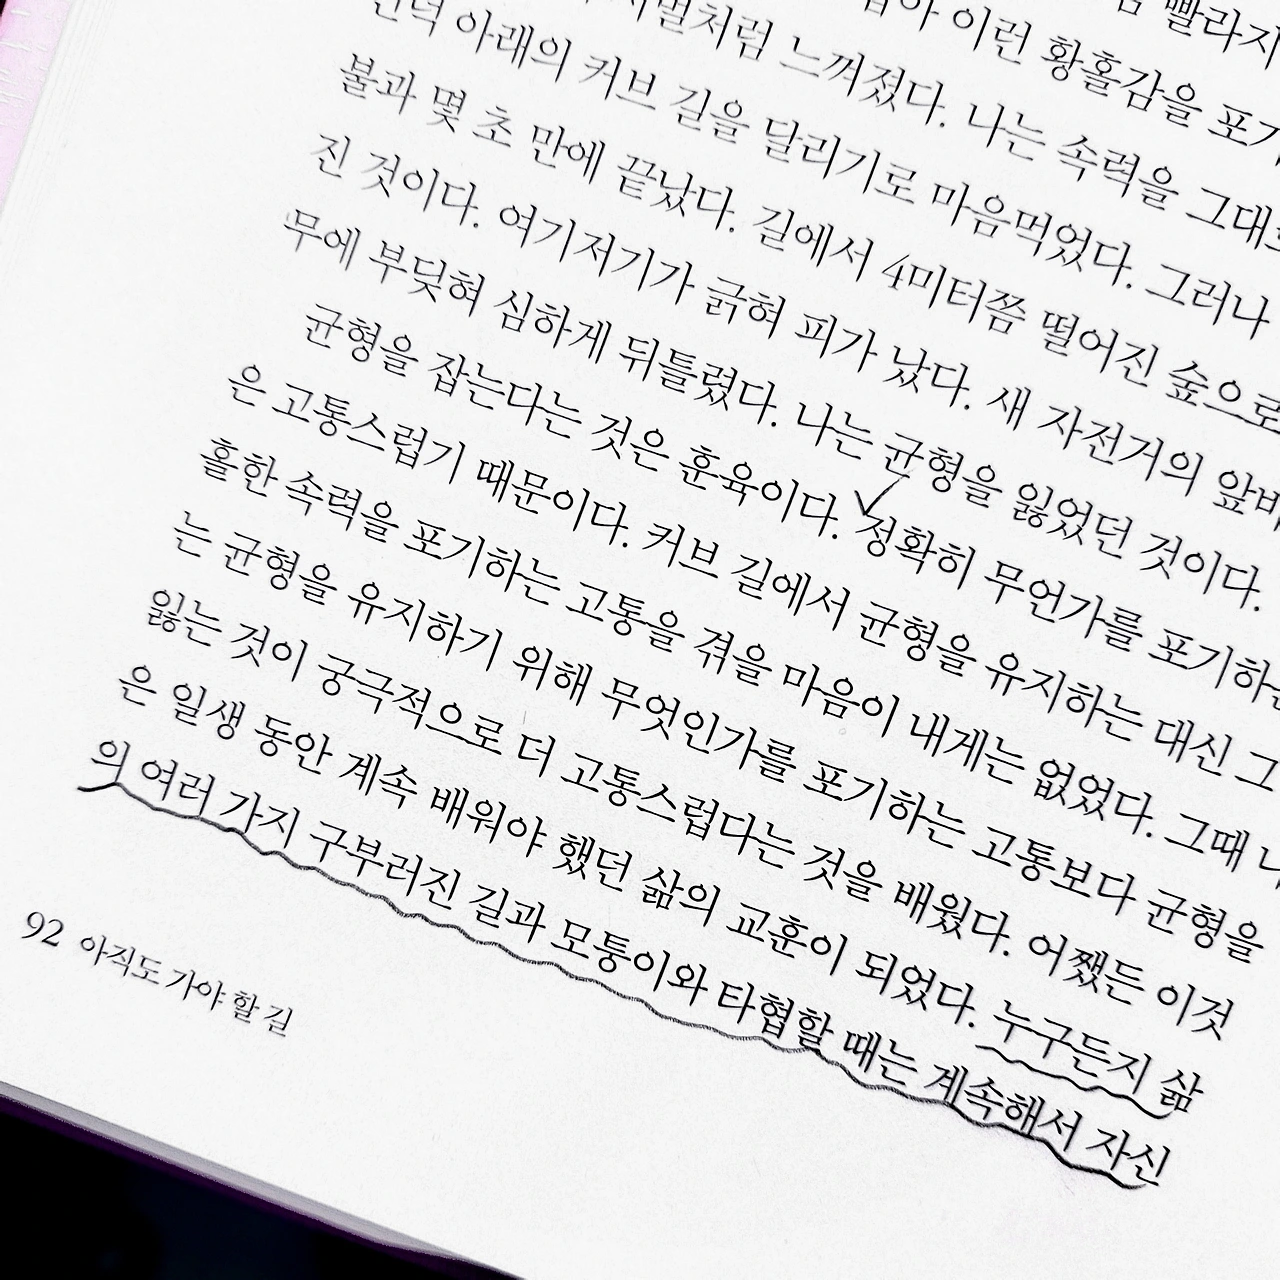 빨라지
이런 황홀감을
느껴졌다. 나는 속력을 그대로
아래의 커브 길을 달리기로 마음먹었다. 그러나
불과 몇 초 만에 끝났다. 길에서 4미터쯤 떨어진 숲으로
진 것이다. 여기저기가 긁혀 피가 났다. 새 자전거의
무에 부딪혀 심하게 뒤틀렸다. 나는 균형을 잃었던 것이다.
균형을 잡는다는 것은 훈육이다. 정확히 무언가를 포기하는
은 고통스럽기 때문이다. 커브 길에서 균형을 유지하는 대신 그
홀한 속력을 포기하는 고통을 겪을 마음이 내게는 없었다. 그때
는 균형을 유지하기 위해 무엇인가를 포기하는 고통보다 균형을
잃는 것이 궁극적으로 더 고통스럽다는 것을 배웠다. 어쨌든 이것
은 일생 동안 계속 배워야 했던 삶의 교훈이 되었다. 누구든지 삶
의 여러 가지 구부러진 길과 모퉁이와 타협할 때는 계속해서 자신
92 아직도 가야 할 길